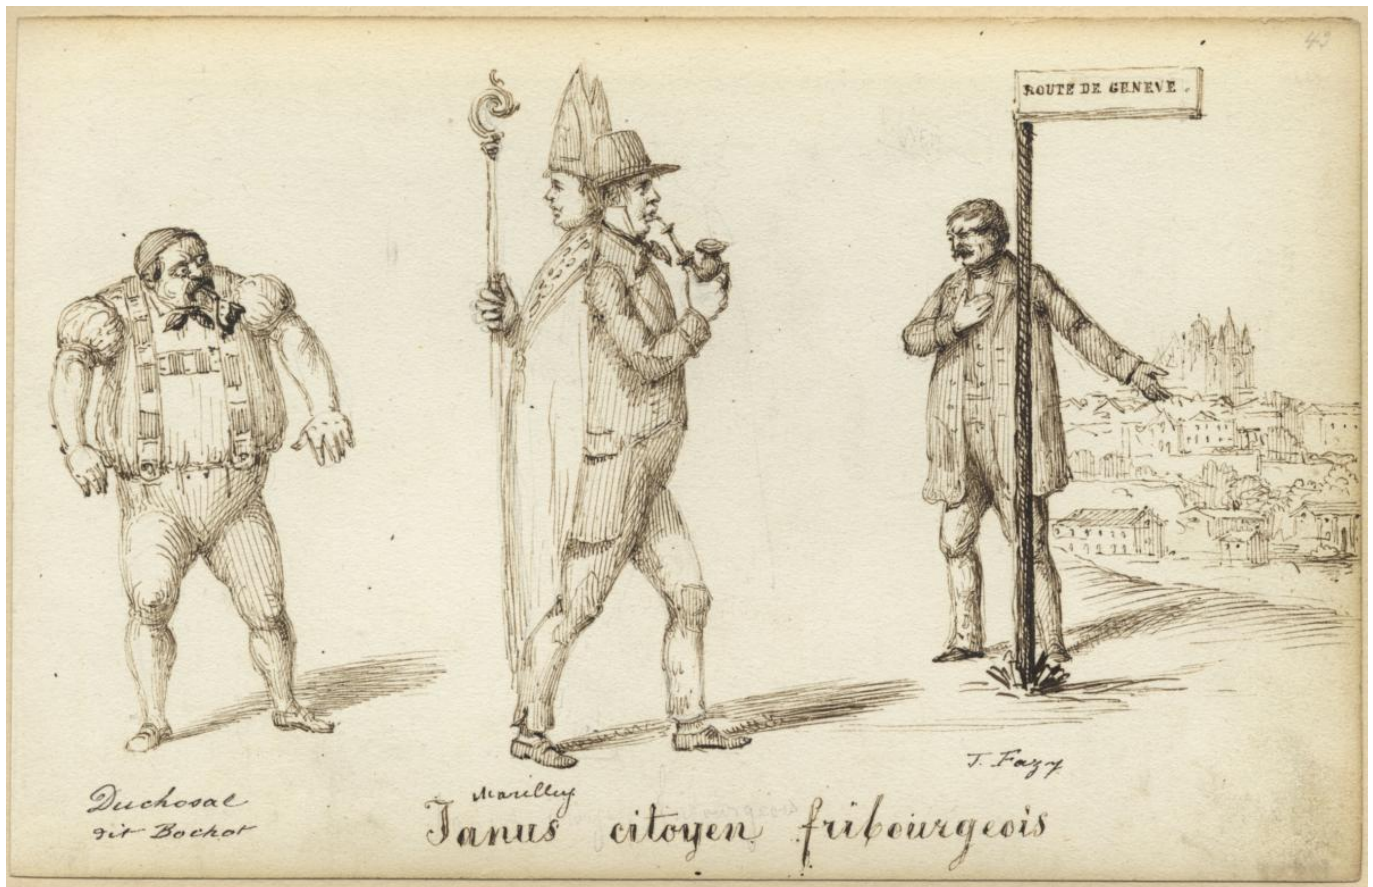 43
ROUTE DE GENEVE.
J. Fazy
Duchosal
dit Bochot
Marilley
Janus citoyen fribourgeois